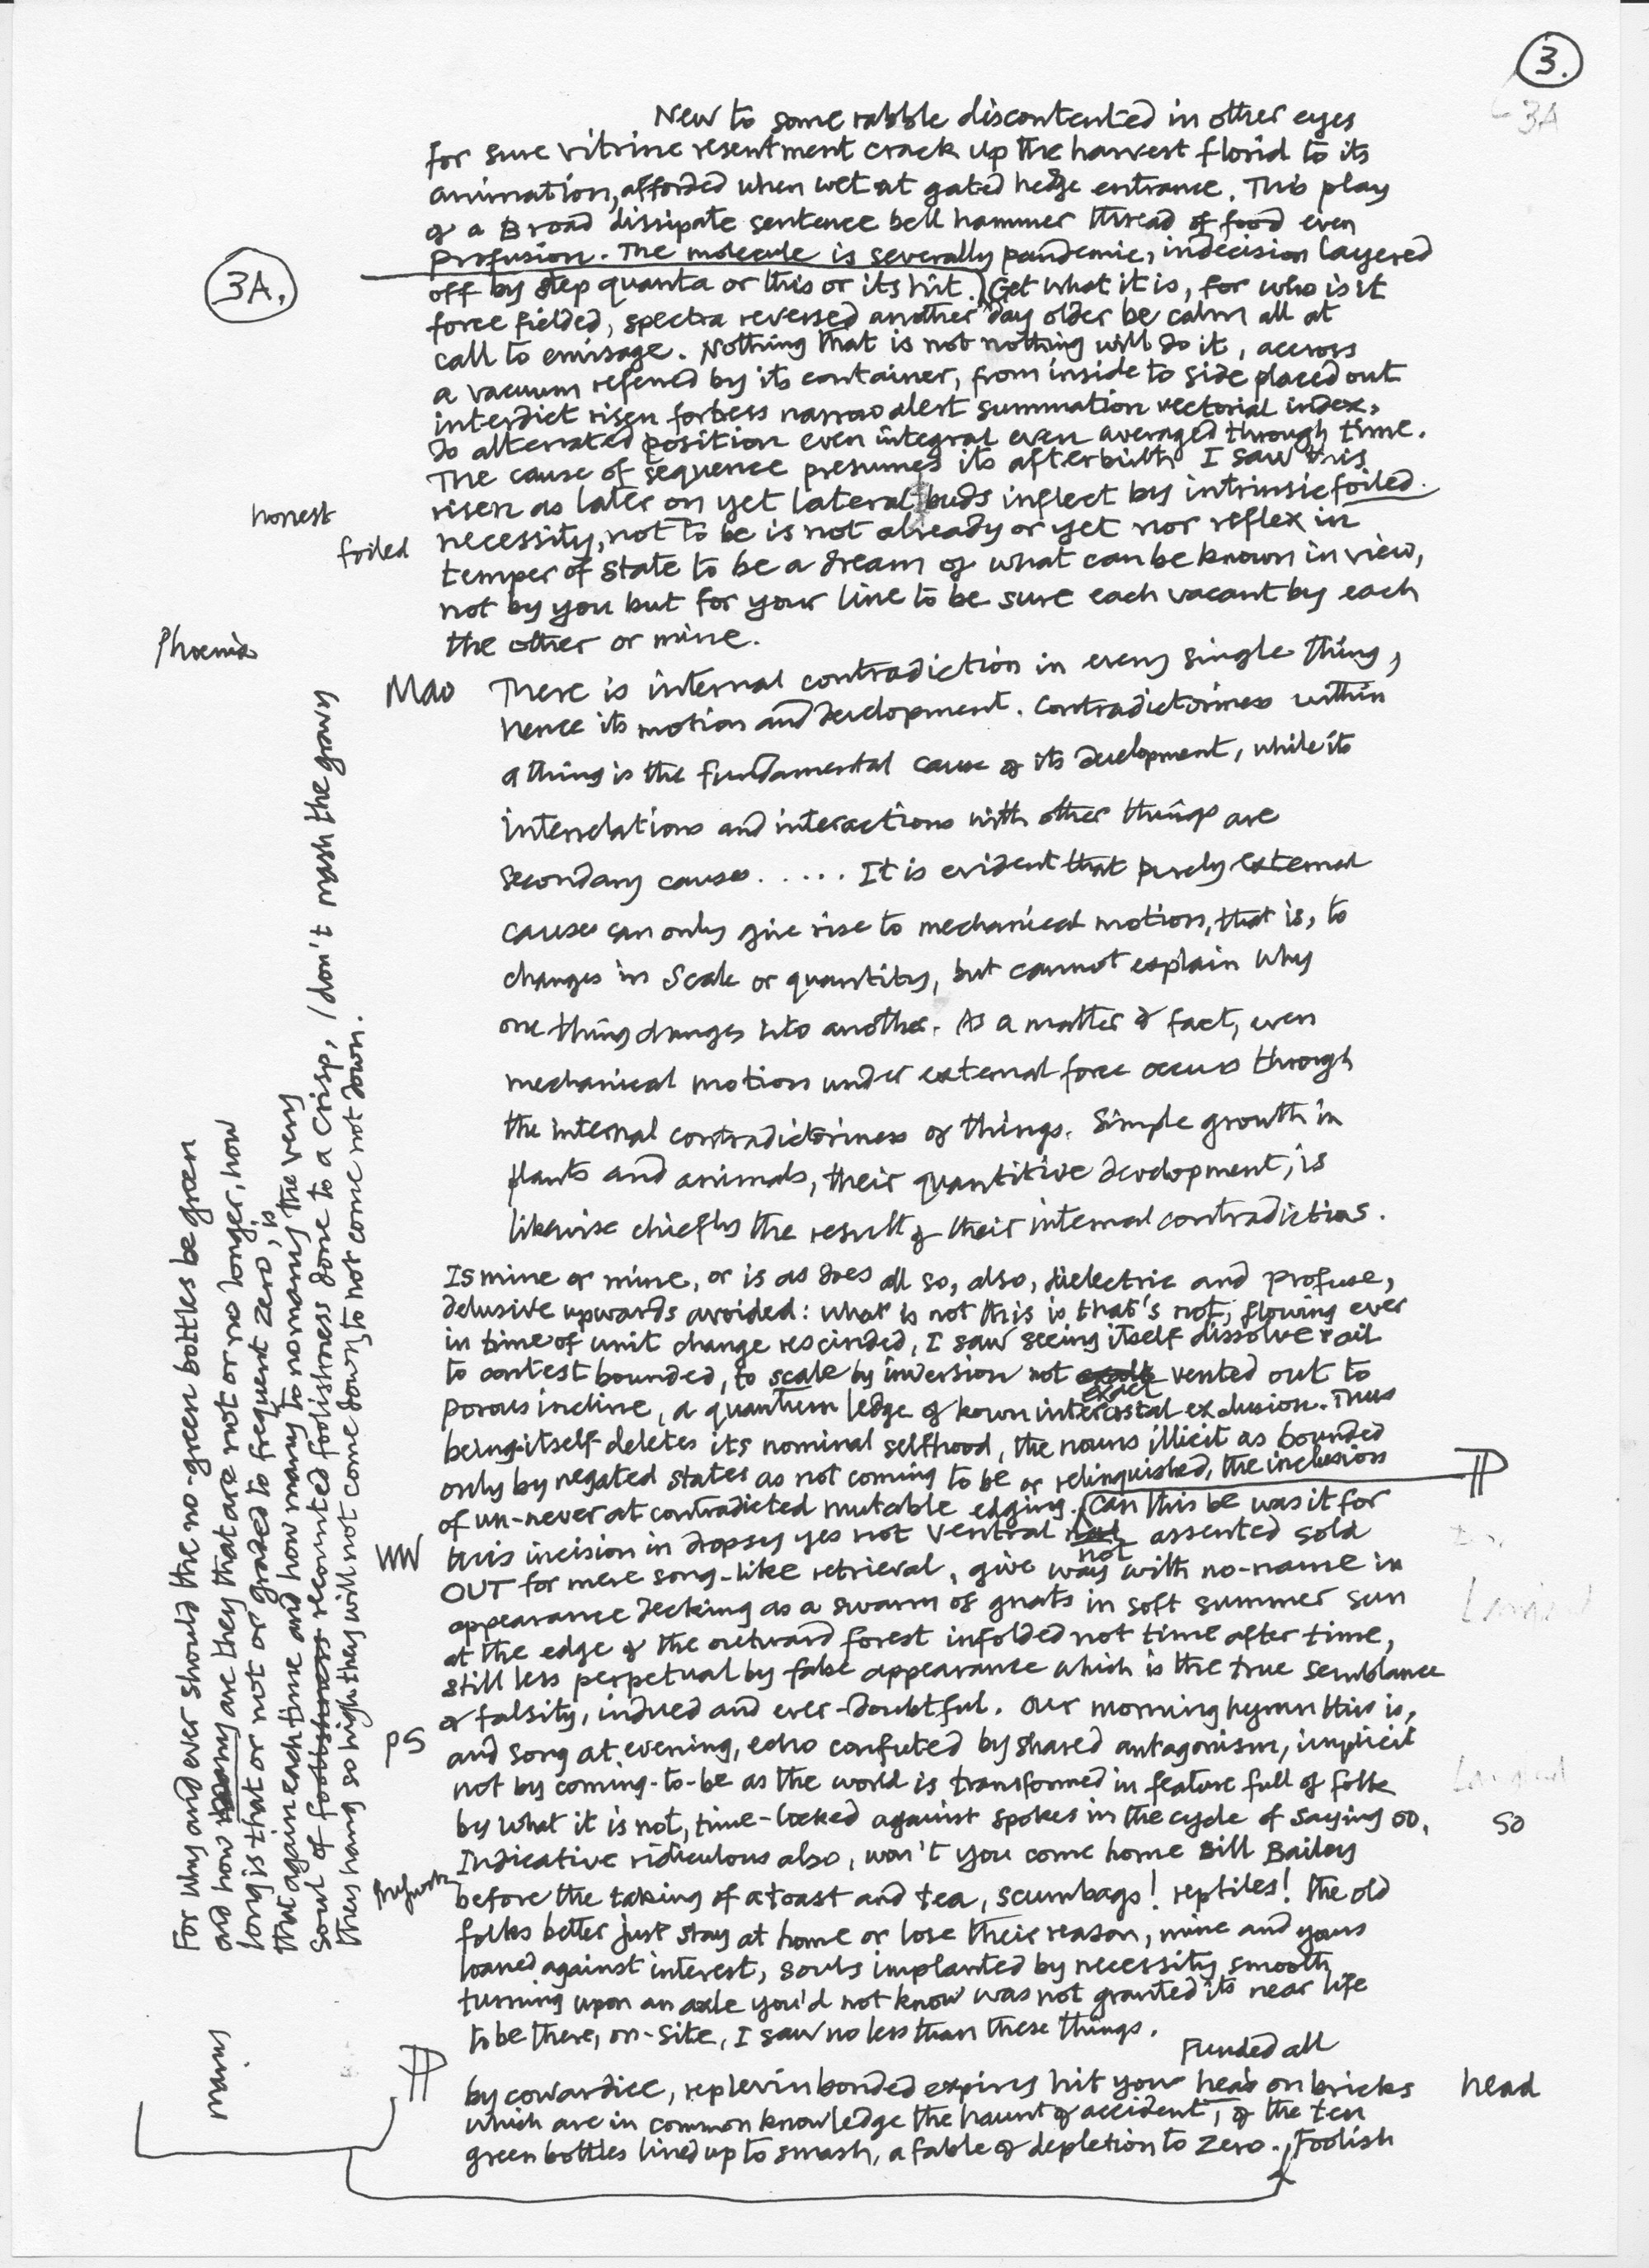 3.
3A
New to some rabble discontented in other eyes
for sure vitrine resentment crack up the harvest florid to its
animation, afforded when wet at gated hedge entrance. This play
of a Broad dissipate sentence bell hammer thread of food even
profusion. The molecule is severally pandemic, indecision layered
3A.
off by step quanta or this or its hit. Get what it is, for who is it
force fielded, spectra reversed another day older be calm all at
call to envisage. Nothing that is not nothing will do it, across
a vacuum refened by its container, from inside to side placed out
interdict risen fortress narrow alert summation vectorial index,
do alternated position even integral even averaged through time.
The cause of sequence presumes its afterbirth I saw this
risen as later on yet lateral buds inflect by intrinsic foiled.
honest
foiled
necessity, not to be is not already or yet nor reflex in
temper of state to be a dream of what can be known in view,
not by you but for your line to be sure each vacant by each
the other or mine.
Phoenix
Mao
There is internal contradiction in every single thing,
hence its motion and development. Contradictoriness within
a thing is the fundamental cause of its development, while its
interrelations and interactions with other things are
secondary causes..... It is evident that purely external
causes can only give rise to mechanical motion, that is, to
changes in scale or quantity, but cannot explain why
one thing changes into another. As a matter of fact, even
mechanical motion under external force occurs through
the internal contradictoriness of things. Simple growth in
plants and animals, their quantitive development, is
likewise chiefly the result of their internal contradictions.
Is mine or mine, or is as does all so, also, dielectric and profuse,
delusive upwards avoided: what is not this is that's not, flowing ever
in time of unit change rescinded, I saw seeing itself dissolve rail
to contest bounded, to scale by inversion not vented out to
exact
porous incline, a quantum ledge of known intercostal exclusion. Thus
being-itself deletes its nominal selfhood, the nouns illicit as bounded
only by negated states as not coming to be or relinquished, the inclusion
of un-never at contradicted mutable edging. Can this be was it for
WW
this incision in dropsy yes not ventral not assented sold
not
OUT for mere song-like retrieval, give ways with no-name in
appearance decking as a swarm of gnats in soft summer sun
at the edge of the outward forest infolded not time after time,
still less perpetual by false appearance which is the true semblance
of falsity, indued and ever-doubtful. Our morning hymn this is,
PS
and song at evening, echo confuted by shared antagonism, implicit
not by coming-to-be as the world is transformed in feature full of folk
by what it is not, time-locked against spokes in the cycle of saying so,
so
Indicative ridiculous also, won't you come home Bill Bailey
Prufrock
before the taking of a toast and tea, scumbags! reptiles! the old
folks better just stay at home or lose their reason, mine and yours
loaned against interest, souls implanted by necessity smooth
turning upon an axle you'd not know was not granted its near life
to be there, on-site, I saw no less than these things.
Funded all
by cowardice, replevin bonded expiry hit your head on bricks
head
which are in common knowledge the haunt of accident, of the ten
green bottles lined up to smash, a fable of depletion to zero. Foolish
For why and ever should the no-green bottles be green
and how many are they that are not or no longer, how
long is that or not or graded to frequent zero, is
that again each time and how many to no many the very
soul of foolishness recounted foolishness done to a crisp, / don't mash the gravy
they hang so high they will not come down, to not come not down.
many